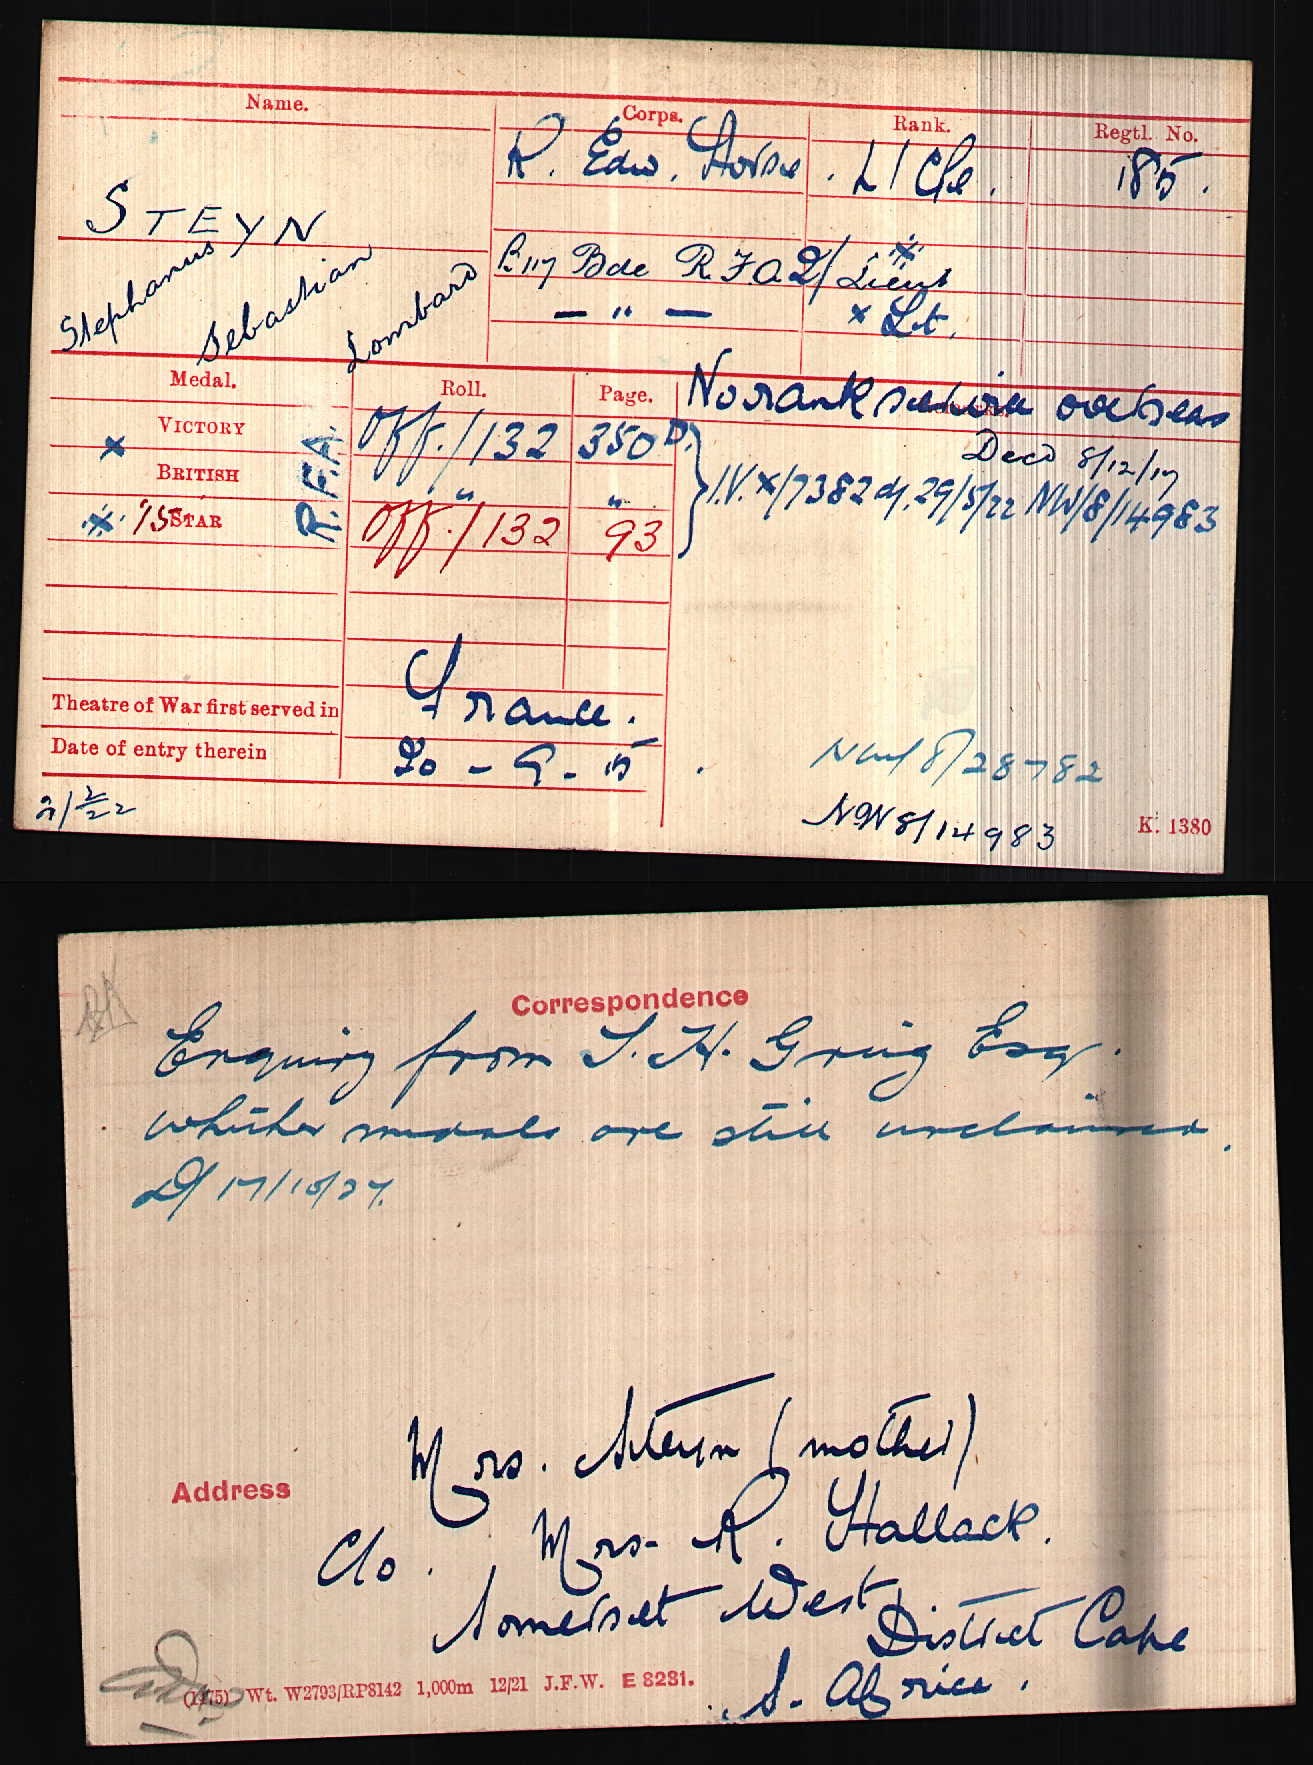 Name. Corps. Rank. Regtl. No.
R. Edw. Horse. L/Cpl. 185.
STEYN
Stephanus Sebastian Lombard
B117 Bde R.F.A 2/Lieut
— " — × Lt.
Medal. Roll. Page. No rank service overseas
VICTORY Off./132 350 D.
Decd 8/12/17
× R.F.A.
BRITISH " " I.V. X/7382 d/. 29/5/22 NW/8/14983
× 15 STAR Off./132 93
Theatre of War first served in France.
Date of entry therein 20 - 9 - 15.
NW/8/28782
NW8/14983
K. 1380
Correspondence
Enquiry from S. H. Greig Esq.
whether medals are still unclaimed.
D/ 17/10/27.
Address
Mrs. Steyn (mother)
C/o. Mrs. R. Hallack.
Somerset West
District Cape
S. Africa.
(1975) Wt. W2793/RP8142 1,000m 12/21 J.F.W. E 8281.